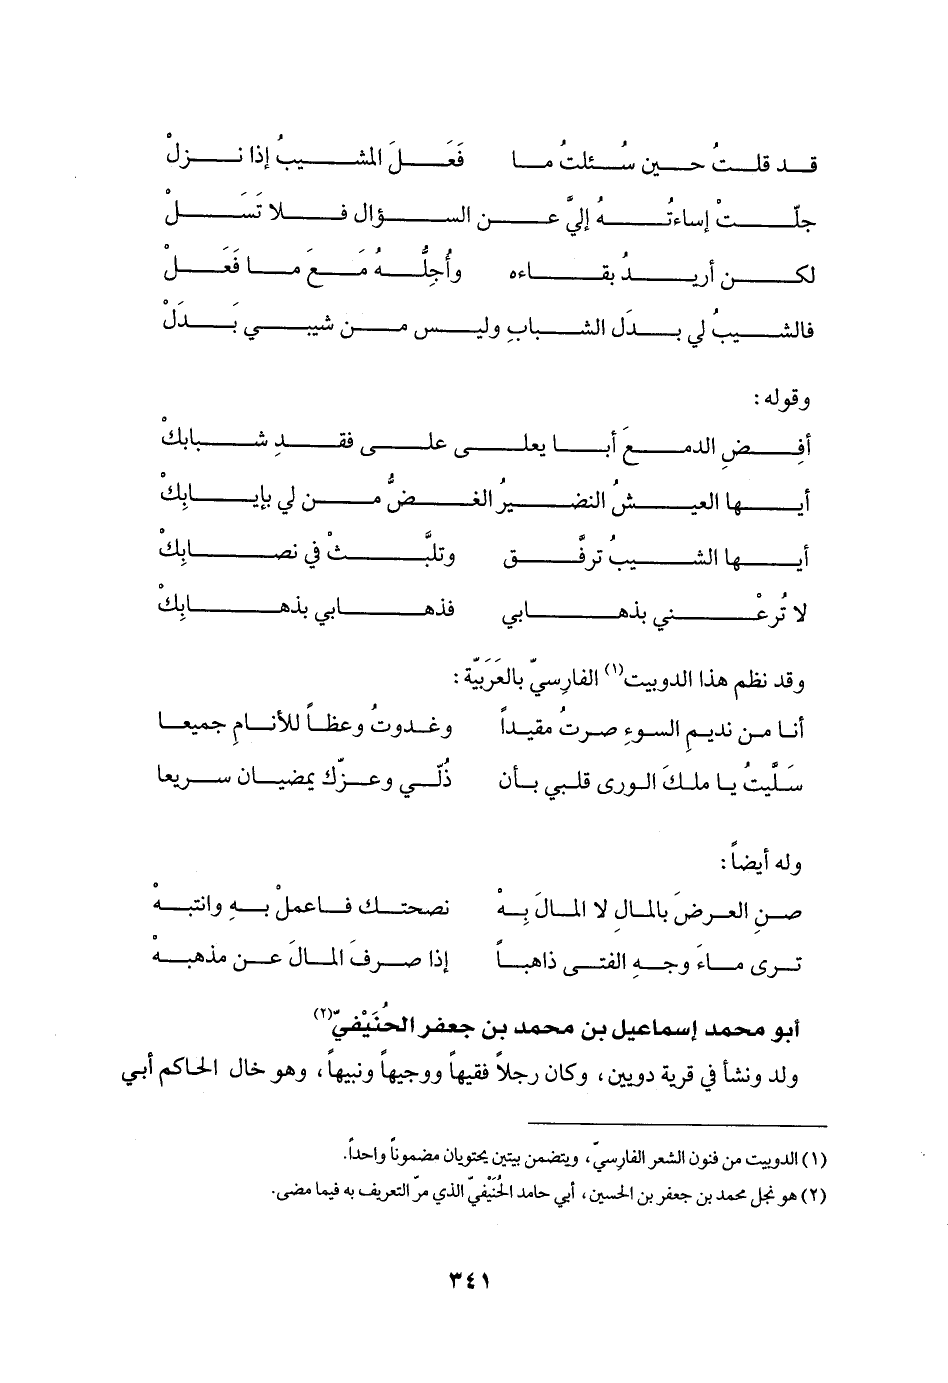 قد قلتُ حين سُئلتُ ما فَعَلَ المشيبُ إذا نزلْ
جلّتْ إساءتُهُ إليَّ عن السؤال فلا تَسَلْ
لكن أريدُ بقاءه وأُجِلُّهُ مَعَ ما فَعَلْ
فالشيبُ لي بدَل الشبابِ وليس من شيبي بَدَلْ
وقوله:
أفِضِ الدمعَ أبا يعلى على فقدِ شبابكْ
أيها العيشُ النضيرُ الغضُّ من لي بإيابِكْ
أيها الشيبُ ترفَّق وتلبَّثْ في نصابِكْ
لا تُرعْني بذهابي فذهابي بذهابِكْ
وقد نظم هذا الدوبيت(١) الفارِسيّ بالعَرَبيّة:
أنا من نديمِ السوءِ صرتُ مقيداً وغدوتُ وعظاً للأنامِ جميعا
سَلَّيتُ يا ملكَ الورى قلبي بأن ذُلّي وعزّك يمضيان سريعا
وله أيضاً:
صنِ العرضَ بالمالِ لا المالَ بِهْ نصحتك فاعملْ بهِ وانتبهْ
ترى ماءَ وجهِ الفتى ذاهباً إذا صرفَ المالَ عن مذهبهْ
أبو محمد إسماعيل بن محمد بن جعفر الحُنَيْفيّ(٢)
ولد ونشأ في قرية دويين، وكان رجلاً فقيهاً ووجيهاً ونبيهاً، وهو خال الحاكم أبي
(١) الدوبيت من فنون الشعر الفارسيّ، ويتضمن بيتين يحتويان مضموناً واحداً.
(٢) هو نجل محمد بن جعفر بن الحسين، أبي حامد الحُنَيْفيّ الذي مرّ التعريف به فيما مضى.
٣٤١